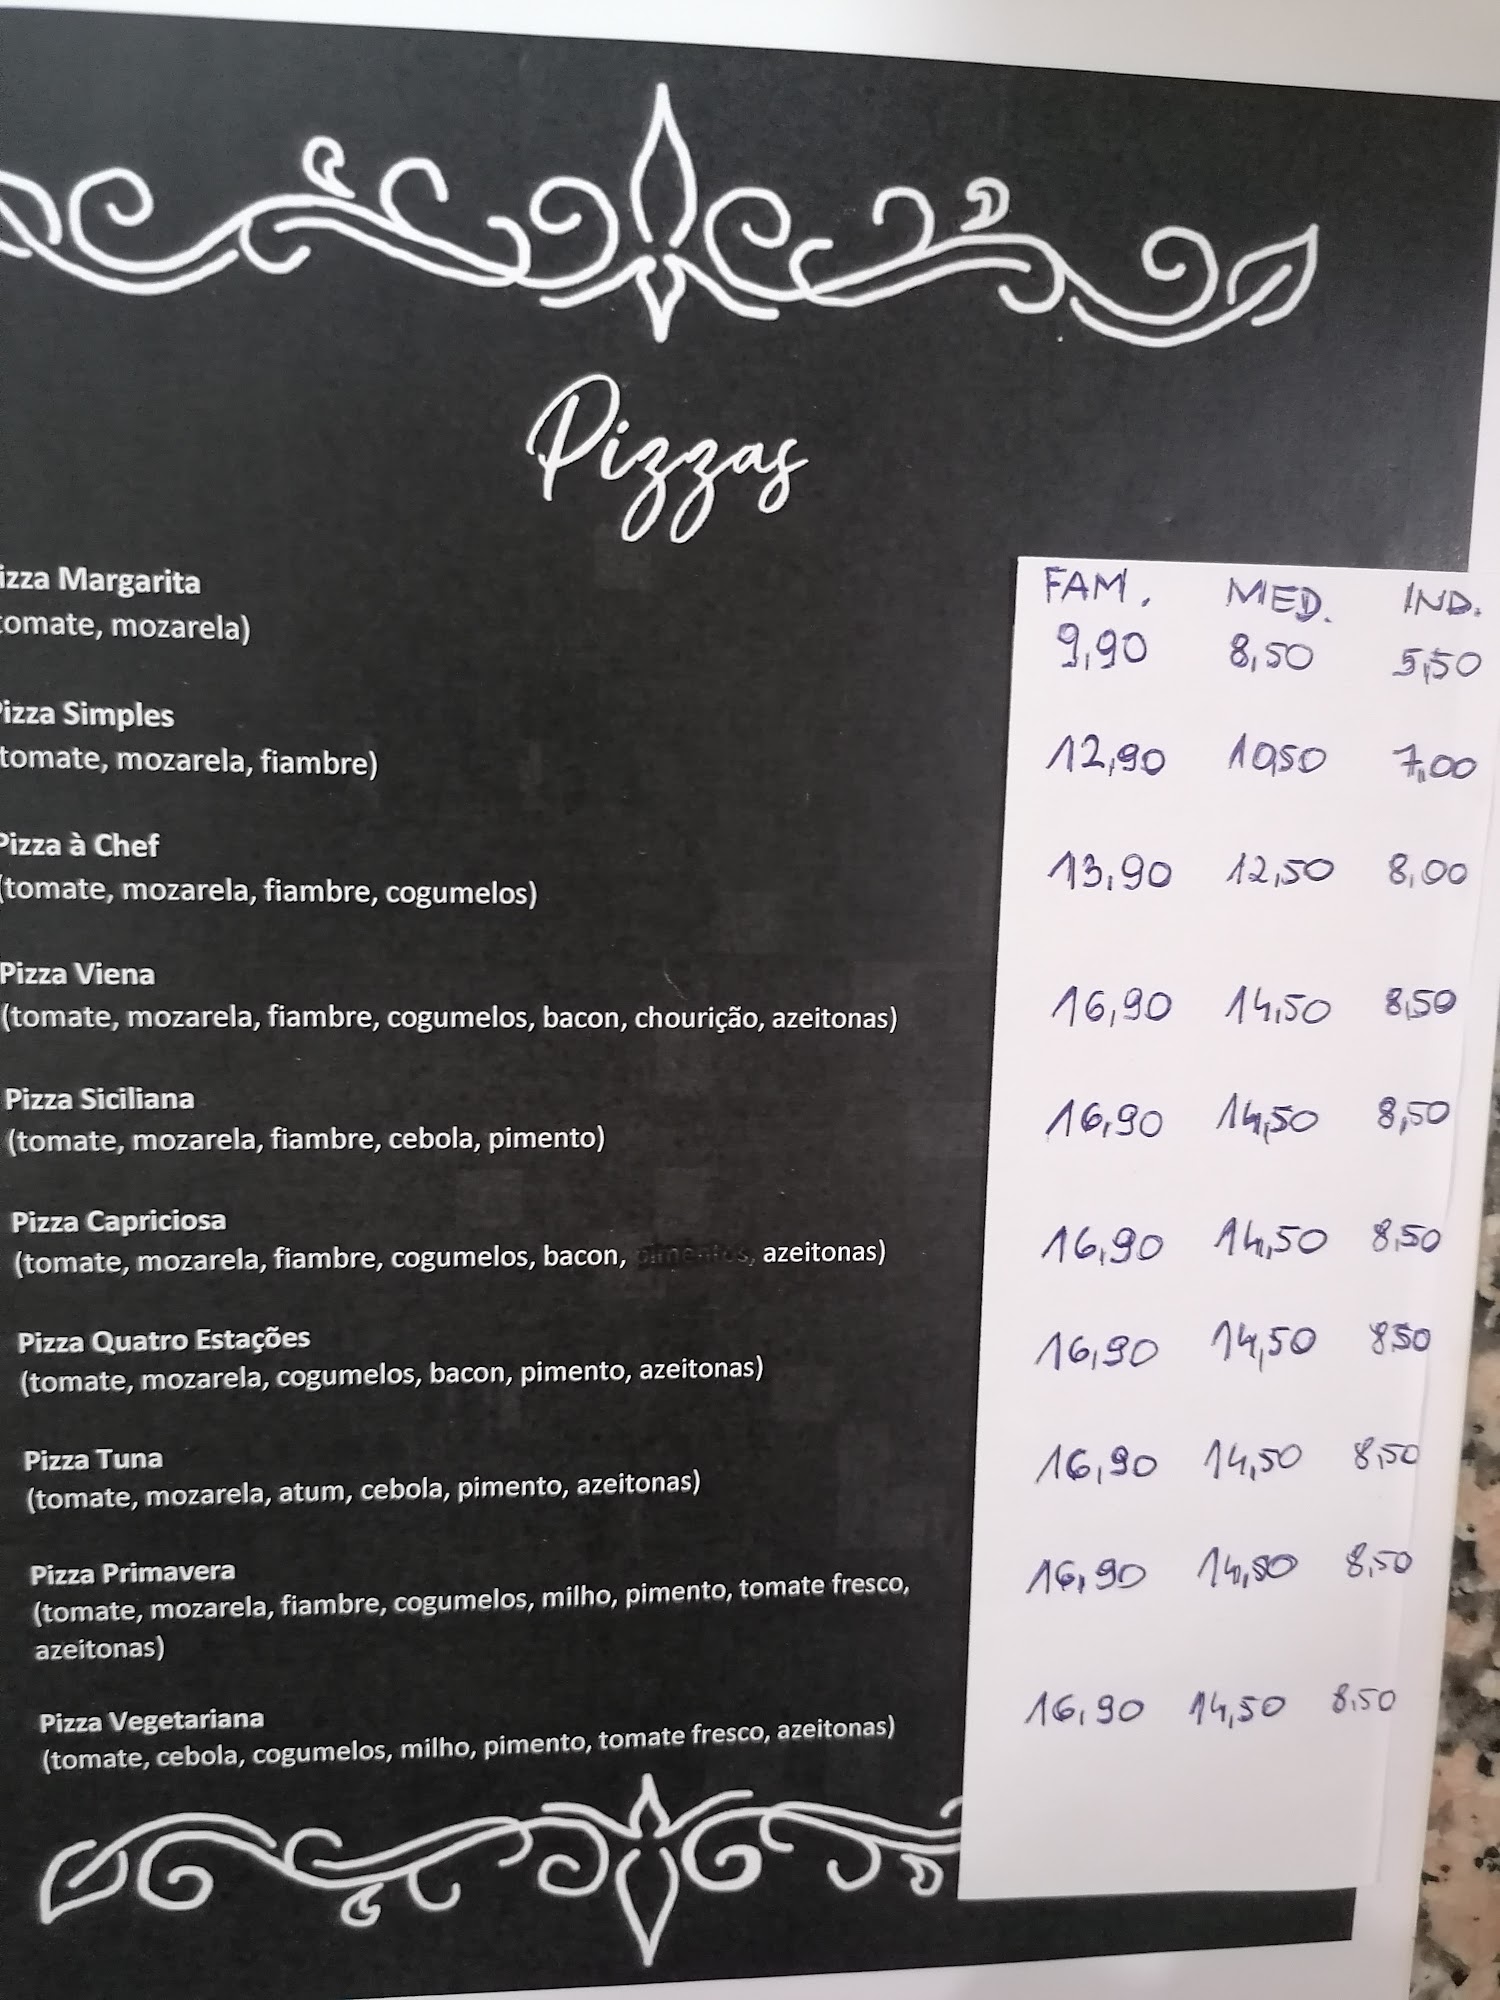 Pizzas
FAM. MED. IND.
izza Margarita
tomate, mozarela) 9,90 8,50 5,50
izza Simples
tomate, mozarela, fiambre) 12,90 10,50 7,00
Pizza à Chef
(tomate, mozarela, fiambre, cogumelos) 13,90 12,50 8,00
Pizza Viena
(tomate, mozarela, fiambre, cogumelos, bacon, chourição, azeitonas) 16,90 14,50 8,50
Pizza Siciliana
(tomate, mozarela, fiambre, cebola, pimento) 16,90 14,50 8,50
Pizza Capriciosa
(tomate, mozarela, fiambre, cogumelos, bacon, pimentos, azeitonas) 16,90 14,50 8,50
Pizza Quatro Estações
(tomate, mozarela, cogumelos, bacon, pimento, azeitonas) 16,90 14,50 8,50
Pizza Tuna
(tomate, mozarela, atum, cebola, pimento, azeitonas) 16,90 14,50 8,50
Pizza Primavera
(tomate, mozarela, fiambre, cogumelos, milho, pimento, tomate fresco, 16,90 14,50 8,50
azeitonas)
Pizza Vegetariana
(tomate, cebola, cogumelos, milho, pimento, tomate fresco, azeitonas) 16,90 14,50 8,50